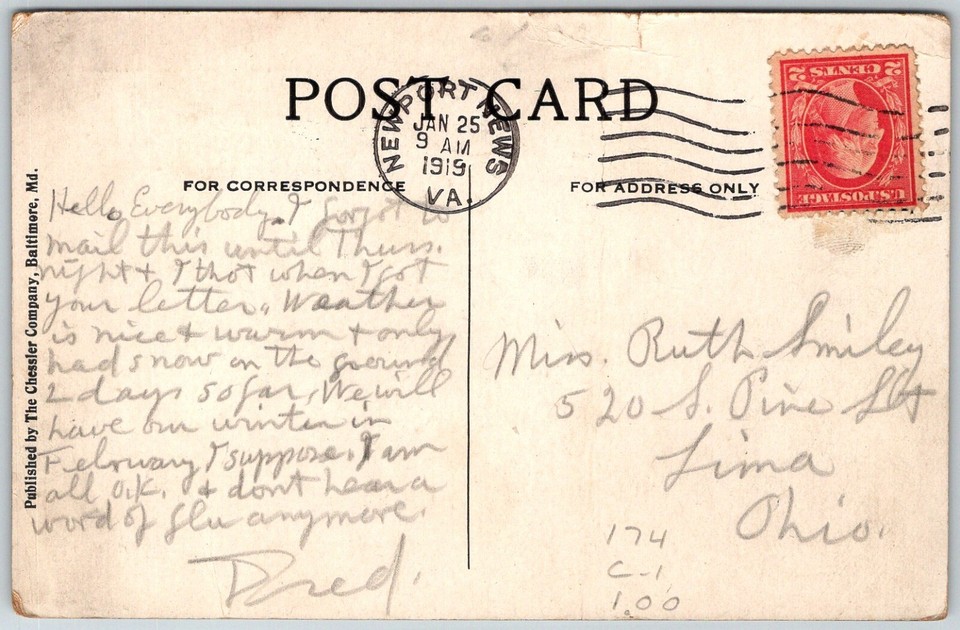 POST CARD
NEWPORT NEWS
JAN 25
9 AM
1919
VA.
2 CENTS 2
U.S. POSTAGE
FOR CORRESPONDENCE
FOR ADDRESS ONLY
Published by The Chessler Company, Baltimore, Md.
Hello Everybody. I forgot to
mail this until Thurs.
night + I thot when I got
your letter. Weather
is nice + warm + only
had snow on the ground
2 days so far. We will
have our winter in
February I suppose. I am
all O.K. + dont hear a
word of flu anymore.
Fred.
Miss. Ruth Smiley
520 S. Pine St
Lima
Ohio.
174
C-1
1.00